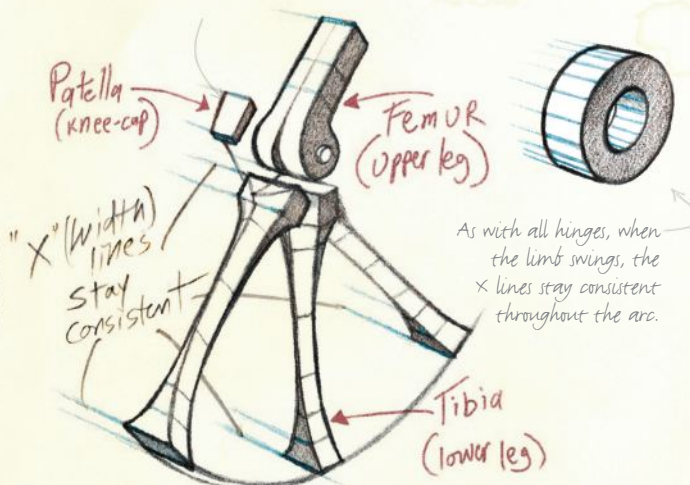 Patella
(knee-cap)
Femur
(upper leg)
"X" (width)
lines
stay
consistent
As with all hinges, when
the limb swings, the
x lines stay consistent
throughout the arc.
Tibia
(lower leg)